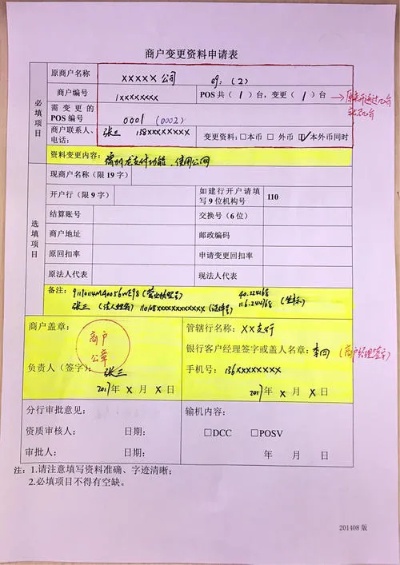 商户变更资料申请表
必填项目
原商户名称 XXXXX 公司 或 (2)
商户编号 1XXXXXXXX POS共（1）台，变更（1）台
需变更的POS编号 0001 (0002)
商户联系人、电话: 张三 138XXXXXXXX 变更资料：□本币 □外币 ☑本外币同时
资料变更内容:
选填项目
现商户名称（限19字）
开户行（限9字） 如建行开户请填写9位机构号 110
结算账号 交换号（6位）
商户地址 邮政编码
原回扣率 申请变更回扣率
原法人代表 现法人代表
备注:
商户盖章: 管辖行名称: XX支行
商户公章
银行客户经理签字或盖人名章: 李四
负责人（签字）: 张三 手机号: 136XXXXXXXX
2017年 X 月 X 日 2017年 X 月 X 日
分行审批意见: 输机内容:
资质审核人: 日期: □DCC □POSV
审批人: 日期: 年 月 日
注: 1.请注意填写资料准确、字迹清晰;
2.必填项目不得有空缺。
201408 版